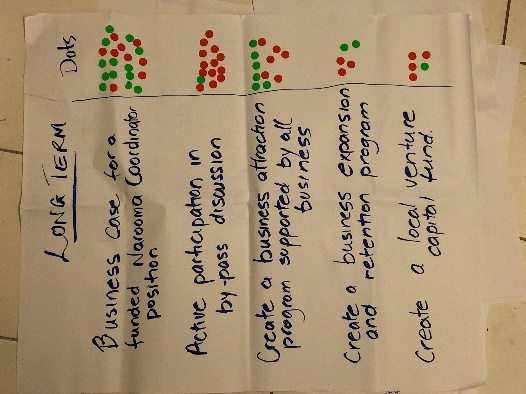 LONG TERM
Dots
Business Case for a
funded Narooma Coordinator
position
Active participation in
by-pass discussion
Create a business attraction
program supported by all
business
Create a business expansion
and retention program
Create a local venture
capital fund.